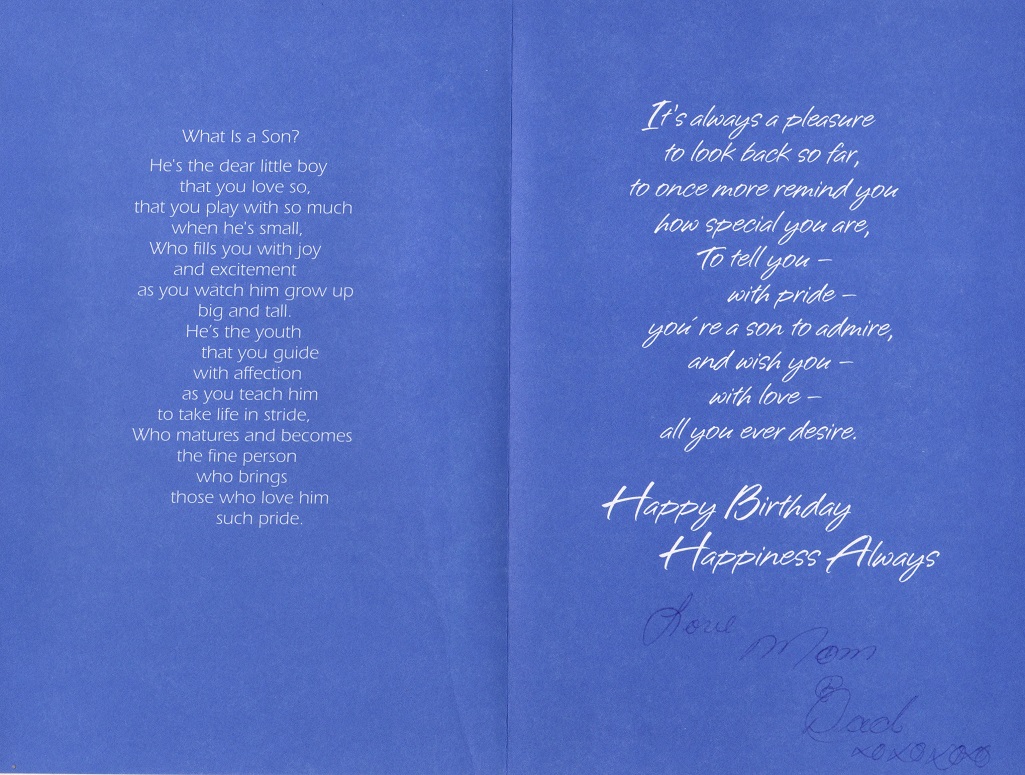 What Is a Son?
He's the dear little boy
that you love so,
that you play with so much
when he's small,
Who fills you with joy
and excitement
as you watch him grow up
big and tall.
He's the youth
that you guide
with affection
as you teach him
to take life in stride,
Who matures and becomes
the fine person
who brings
those who love him
such pride.
It's always a pleasure
to look back so far,
to once more remind you
how special you are,
To tell you –
with pride –
you're a son to admire,
and wish you –
with love –
all you ever desire.
Happy Birthday
Happiness Always
Love
Mom
& Dad
xoxoxoo